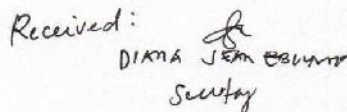 Received:
DIANA JEAN
Secretary